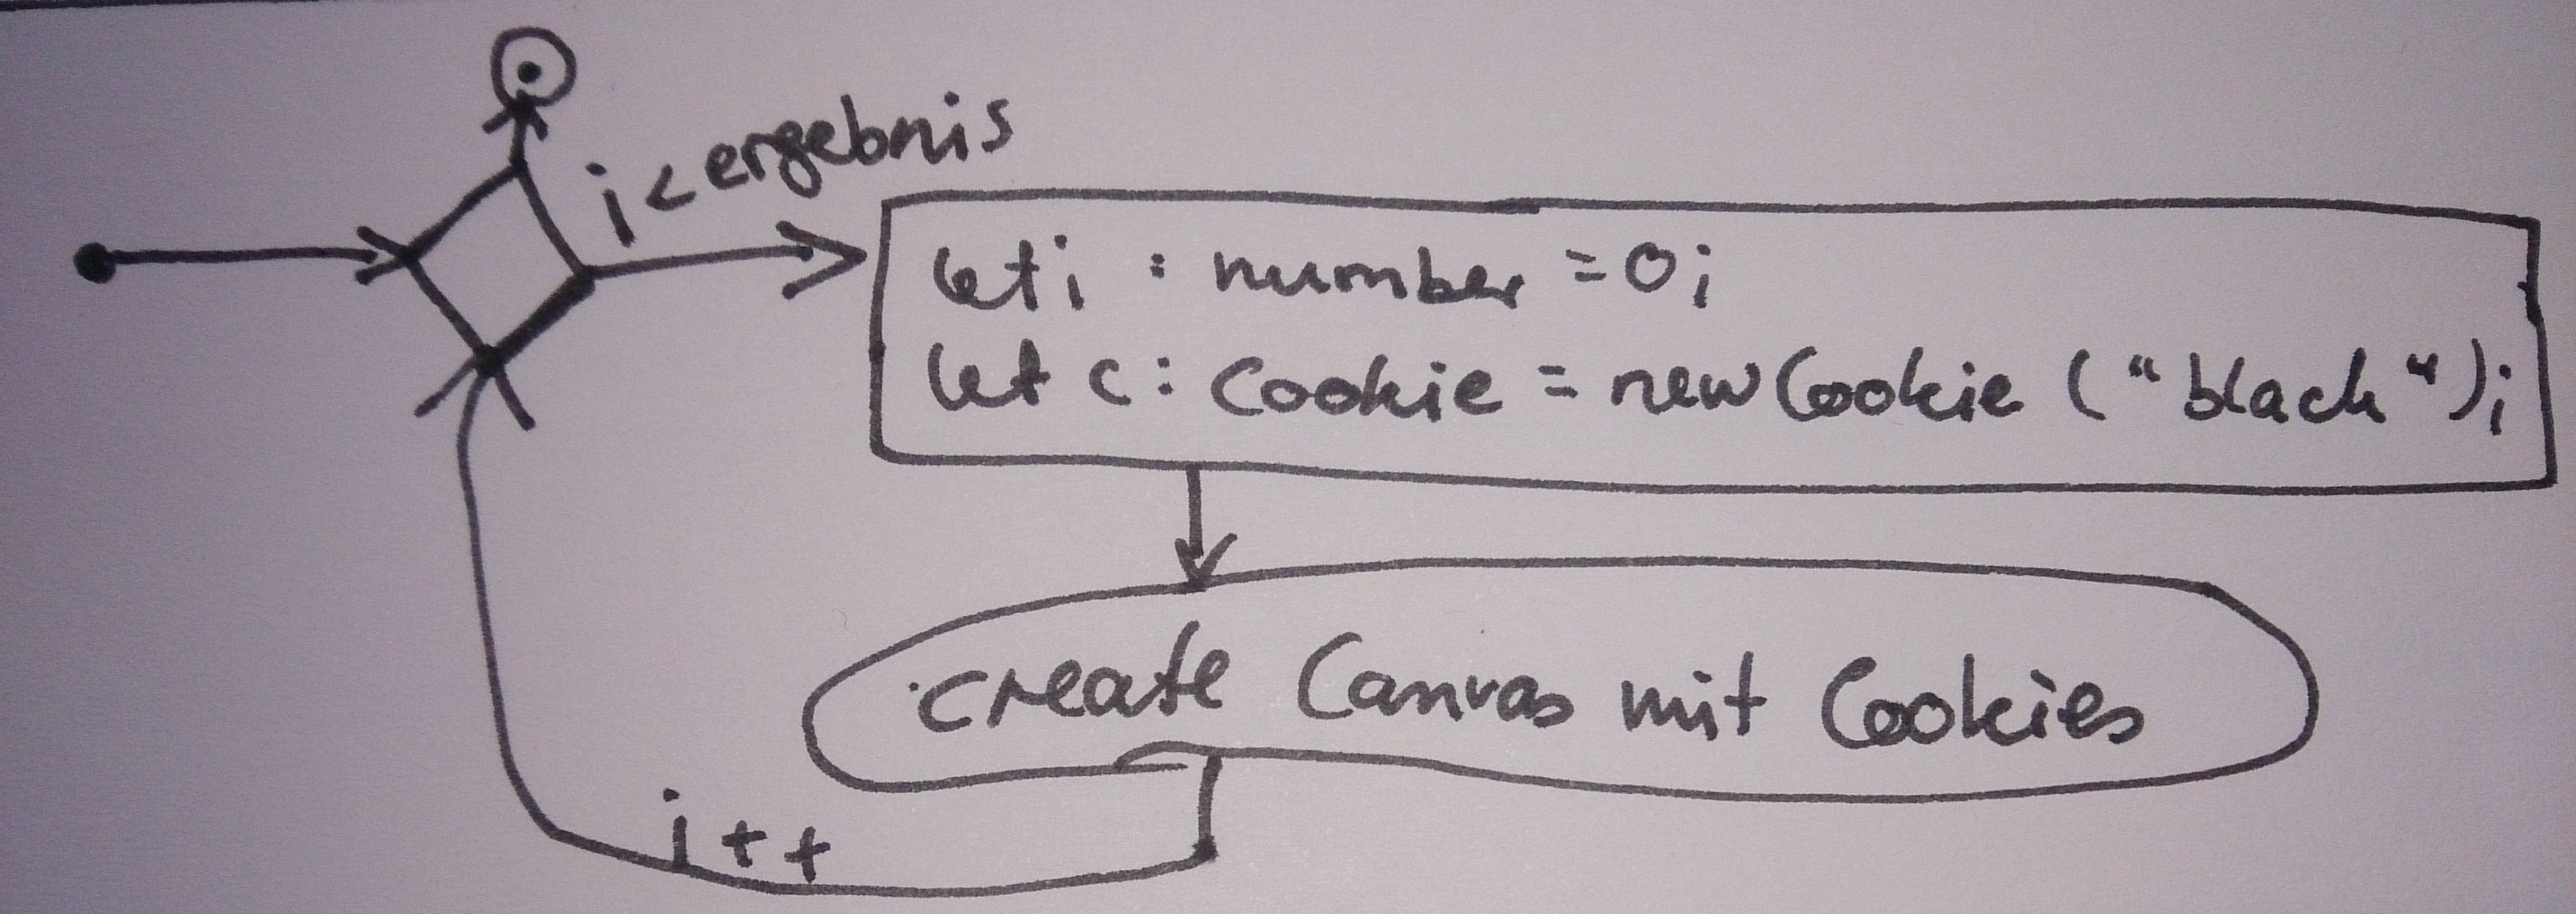 i<ergebnis
let i : number =0;
let c: Cookie = new Cookie ("black");
create Canvas mit Cookies
i++